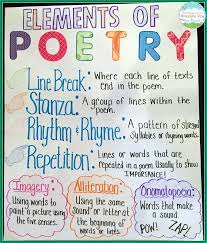 ELEMENTS OF
POETRY
Line Break: Where each line of texts
end in the poem.
Stanza: A group of lines within the
poem.
Rhythm & Rhyme: A pattern of stressed
syllables or rhyming words.
Repetition: Lines or words that are
repeated in a poem. Usually to show
IMPORTANCE!
Imagery:
Using words to
paint a picture using
the five senses.
Alliteration:
Using the same
sound or letter at
the beginning of
words.
Onomatopoeia:
Words that make a
sound.
POW! ZAP!